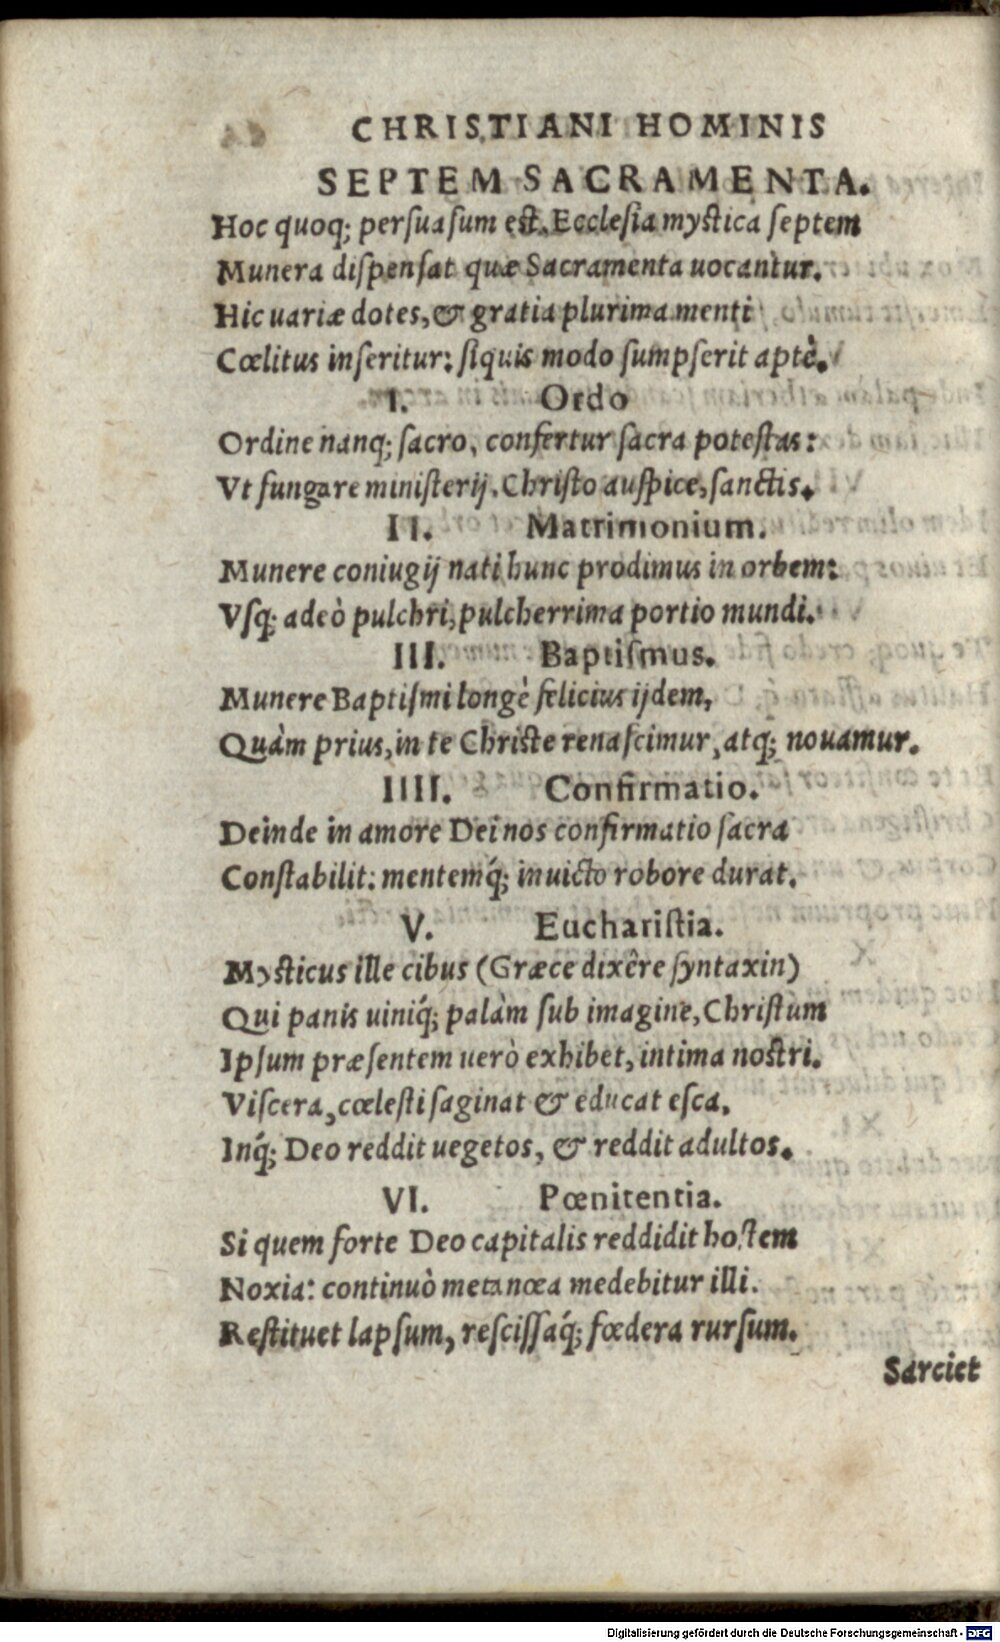 CHRISTIANI HOMINIS
SEPTEM SACRAMENTA.
Hoc quoq; persuasum est. Ecclesia mystica septem
Munera dispensat quæ Sacramenta uocantur.
Hic uariæ dotes, & gratia plurima menti
Cœlitus inseritur: siquis modo sumpserit aptè.
I. Ordo
Ordine nanq; sacro, confertur sacra potestas:
Vt fungare ministerij, Christo auspice, sanctis.
II. Matrimonium.
Munere coniugij nati hunc prodimus in orbem:
Vsq; adeò pulchri, pulcherrima portio mundi.
III. Baptismus.
Munere Baptismi longè felicius ijdem,
Quàm prius, in te Christe renascimur, atq; nouamur.
IIII. Confirmatio.
Deinde in amore Dei nos confirmatio sacra
Constabilit: mentemq́; inuicto robore durat.
V. Eucharistia.
Mysticus ille cibus (Græce dixêre syntaxin)
Qui panis uiniq́; palàm sub imagine, Christum
Ipsum præsentem uerò exhibet, intima nostri.
Viscera, cœlesti saginat & educat esca.
Inq́; Deo reddit uegetos, & reddit adultos.
VI. Pœnitentia.
Si quem forte Deo capitalis reddidit hostem
Noxia: continuò metanœa medebitur illi.
Restituet lapsum, rescissaq́; fœdera rursum.
Sarciet
Digitalisierung gefördert durch die Deutsche Forschungsgemeinschaft - DFG